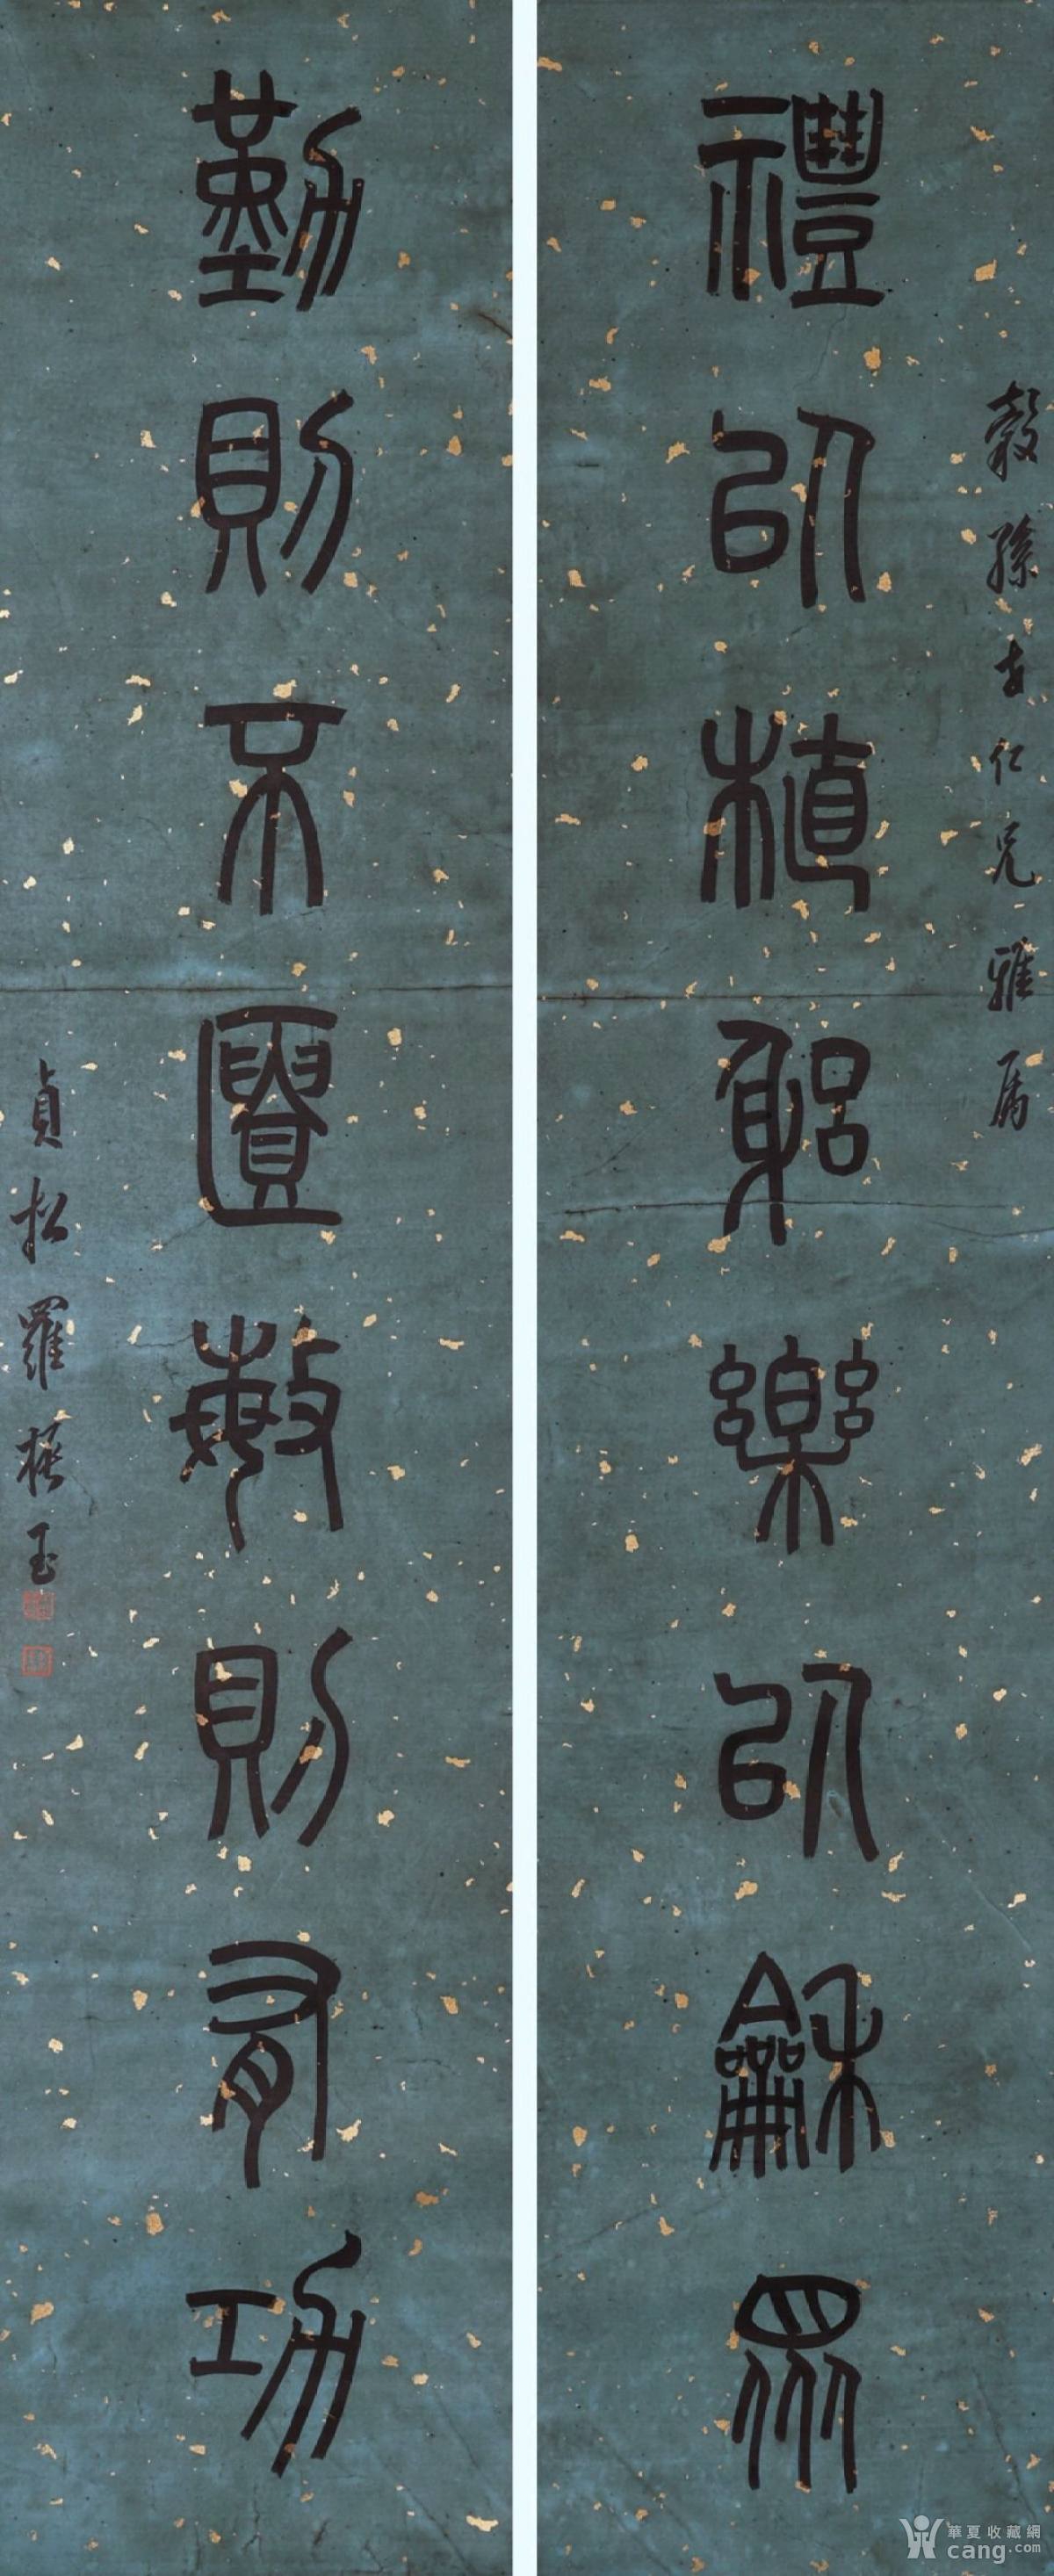 穀孫世仁兄雅屬
禮以植躳樂以龢眾
勤則不匱敏則有功
貞松羅振玉
華夏收藏網
cang.com